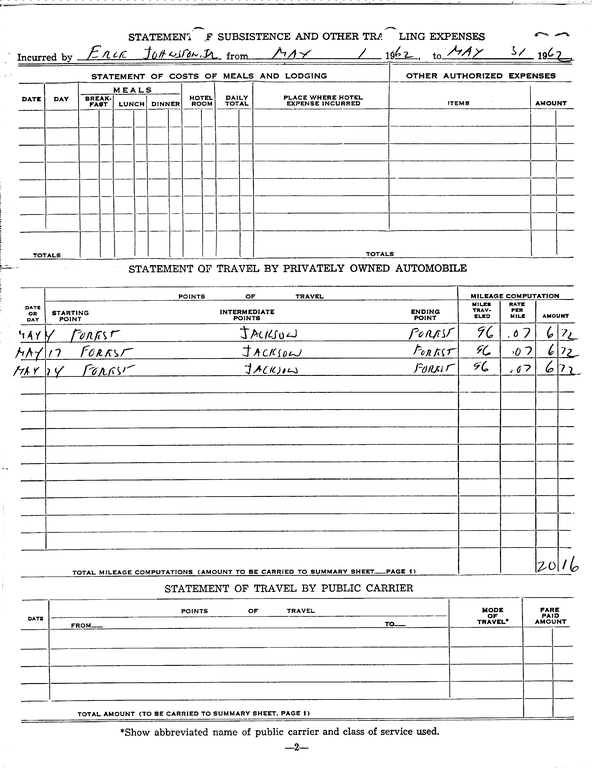 STATEMENT F SUBSISTENCE AND OTHER TRA LING EXPENSES
Incurred by Erle Johnson, Jr from MAY 1 1962, to MAY 31 1962
STATEMENT OF COSTS OF MEALS AND LODGING OTHER AUTHORIZED EXPENSES
DATE DAY MEALS BREAK-FAST LUNCH DINNER HOTEL ROOM DAILY TOTAL PLACE WHERE HOTEL EXPENSE INCURRED ITEMS AMOUNT
TOTALS TOTALS
STATEMENT OF TRAVEL BY PRIVATELY OWNED AUTOMOBILE
POINTS OF TRAVEL MILEAGE COMPUTATION
DATE OR DAY STARTING POINT INTERMEDIATE POINTS ENDING POINT MILES TRAV-ELED RATE PER MILE AMOUNT
MAY 4 FOREST JACKSON FOREST 96 .07 6 72
MAY 17 FOREST JACKSON FOREST 96 .07 6 72
MAY 24 FOREST JACKSON FOREST 96 .07 6 72
TOTAL MILEAGE COMPUTATIONS (AMOUNT TO BE CARRIED TO SUMMARY SHEET PAGE 1) 20 16
STATEMENT OF TRAVEL BY PUBLIC CARRIER
DATE POINTS OF TRAVEL MODE OF TRAVEL* FARE PAID AMOUNT
FROM TO
TOTAL AMOUNT (TO BE CARRIED TO SUMMARY SHEET, PAGE 1)
*Show abbreviated name of public carrier and class of service used.
—2—